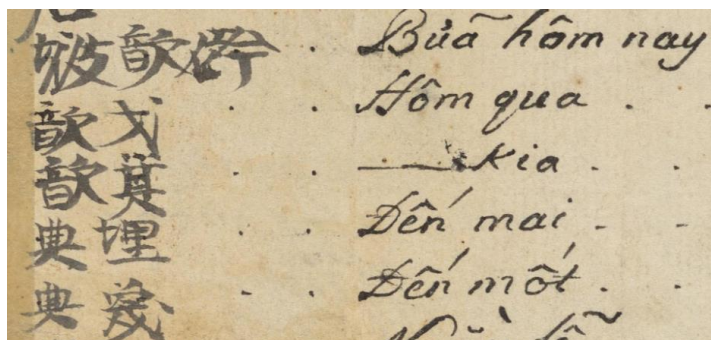 歆 . . Bủã hôm nay
歆戈 . . Hôm qua . .
歆 . . — Kia . .
典埋 . . Đến mai . .
典 . . Đến mốt . .